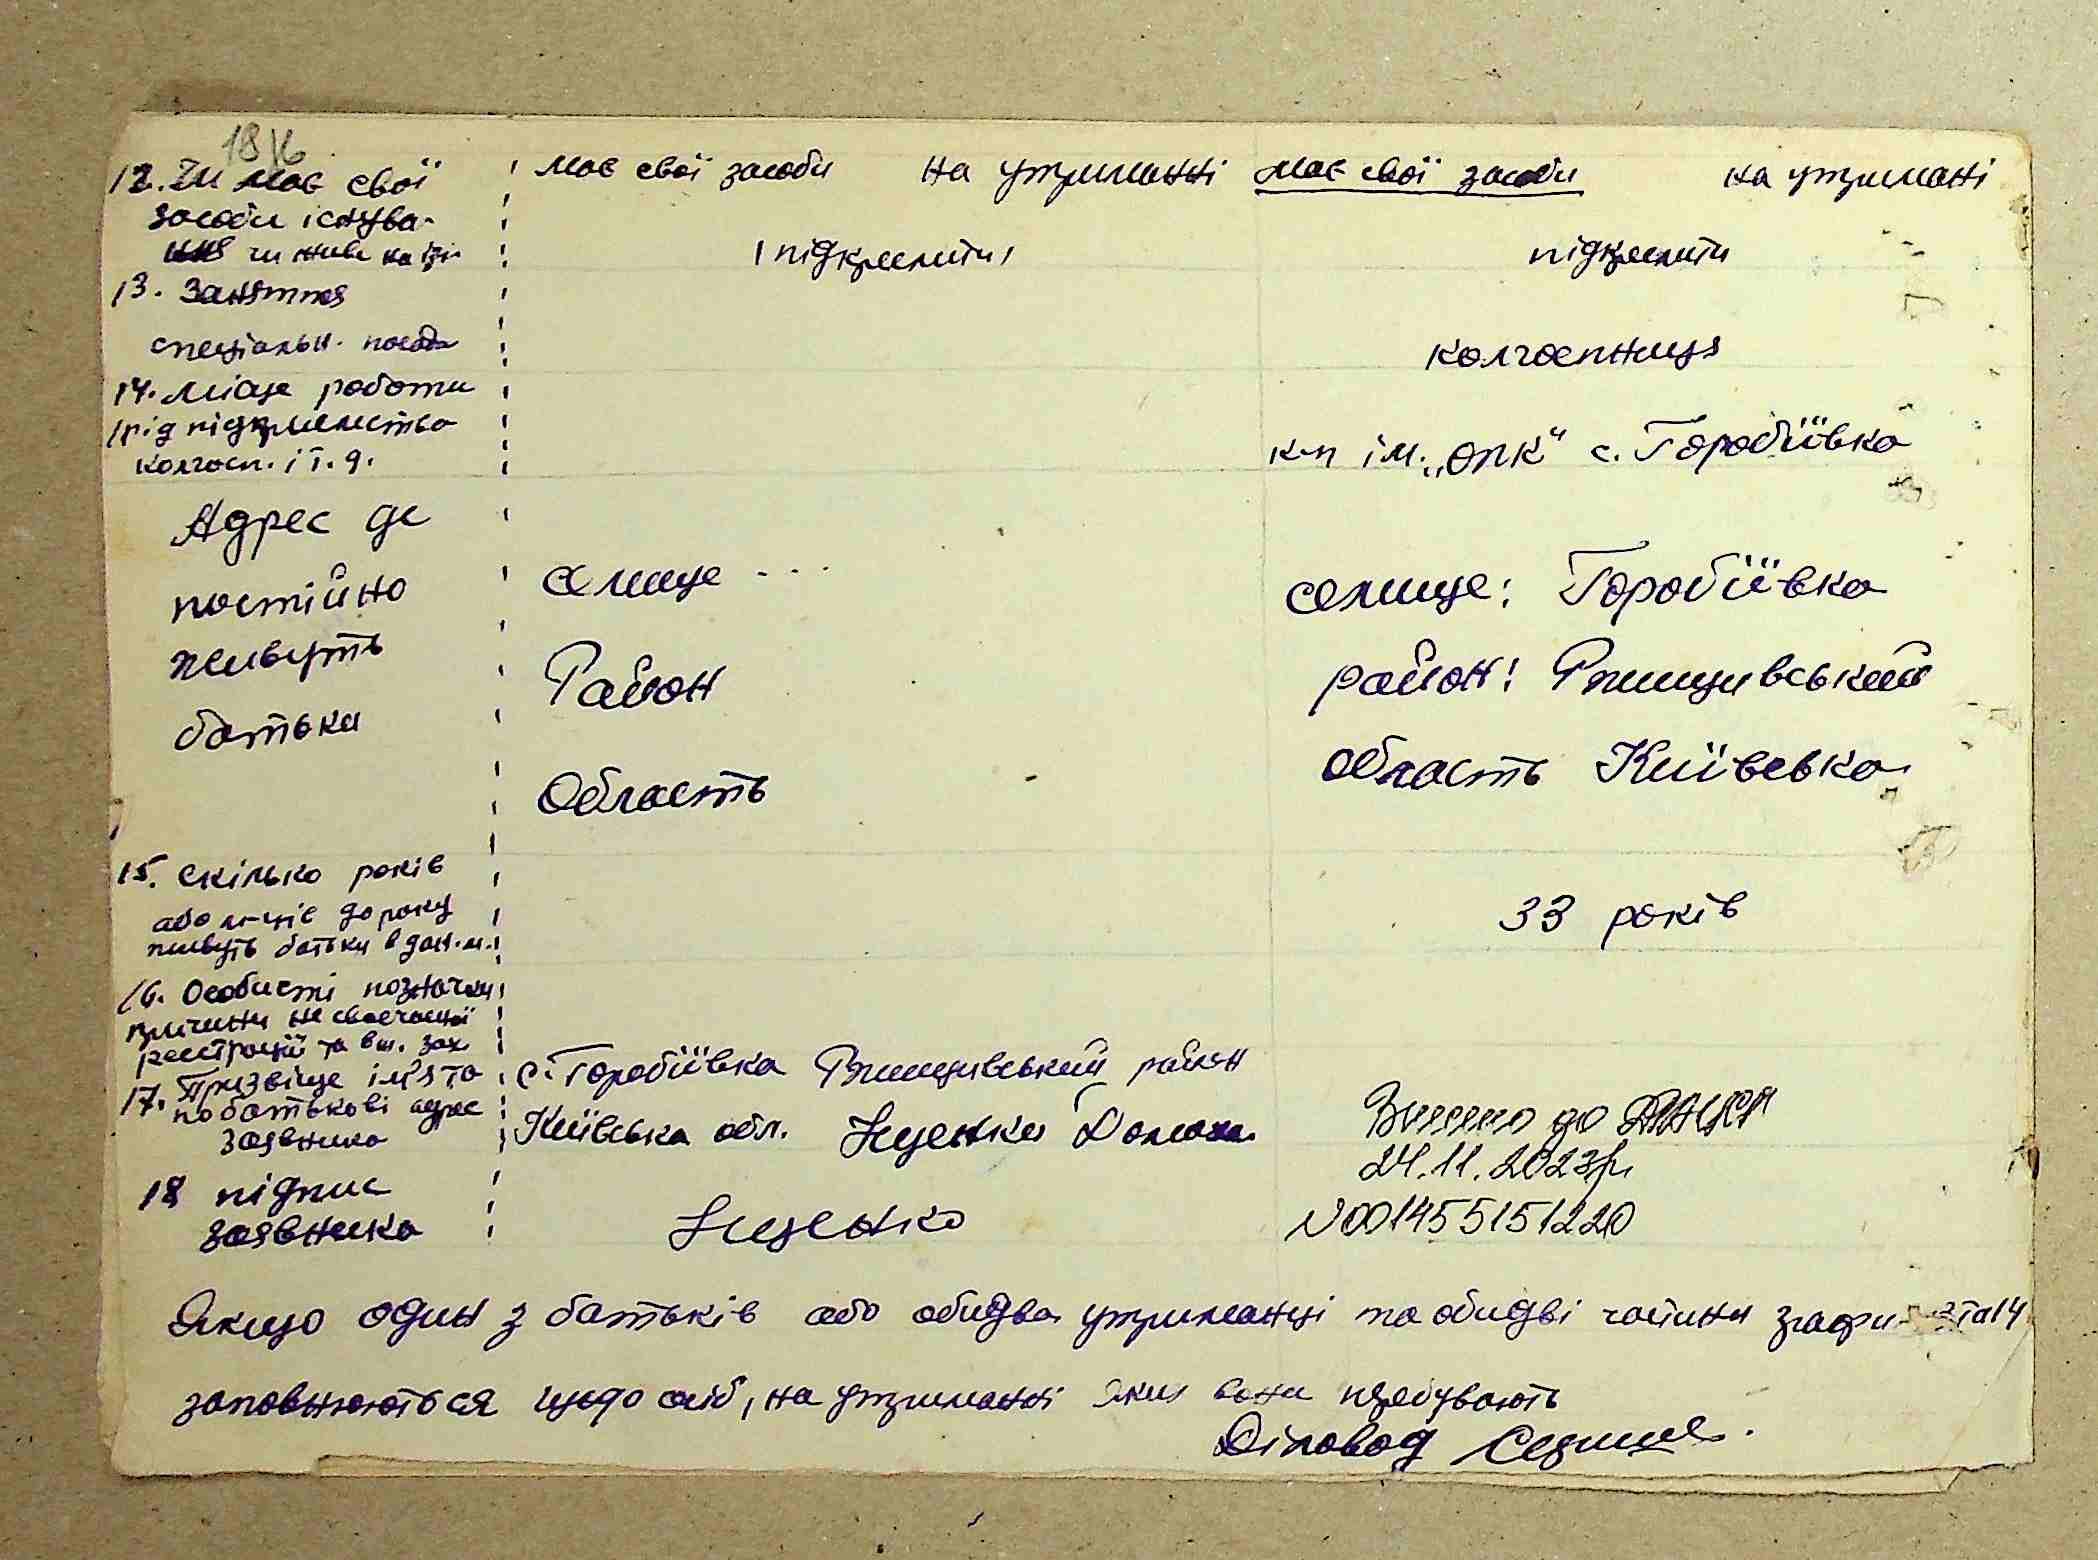 18
12. Чи має свої
засоби існува-
ння чи живе на
має свої засоби на утриманні має свої засоби на утримані
/підкреслити/ підкреслити
13. Заняття
спеціальн. посада
колгоспниця
14. місце роботи
/рід підприємства
колгосп. і т. д.
к-п ім. „ОПК" с. Горобіївка
Адрес де
постійно
живуть
батьки
селище ... селище: Горобіївка
Район район: Ржищівський
Область область Київська
15. скілько років
або м-ців до року
живуть батьки в дан. м.
33 років
16. Особисті позначки
причини не своєчасної
реєстрації та вш. зах.
17. Прізвище ім'я та
по батькові адрес
заявника
с. Горобіївка Ржищівський район
Київська обл. Яценко Домаха
Внесено до ДРАЦСГ
24.11.2023р.
N001455151220
18 підпис
заявника
Яценко
Якщо один з батьків або обидва утриманці то обидві частини графи 13 та 14
заповнюються щодо осіб, на утриманні яких вони перебувають
Діловод